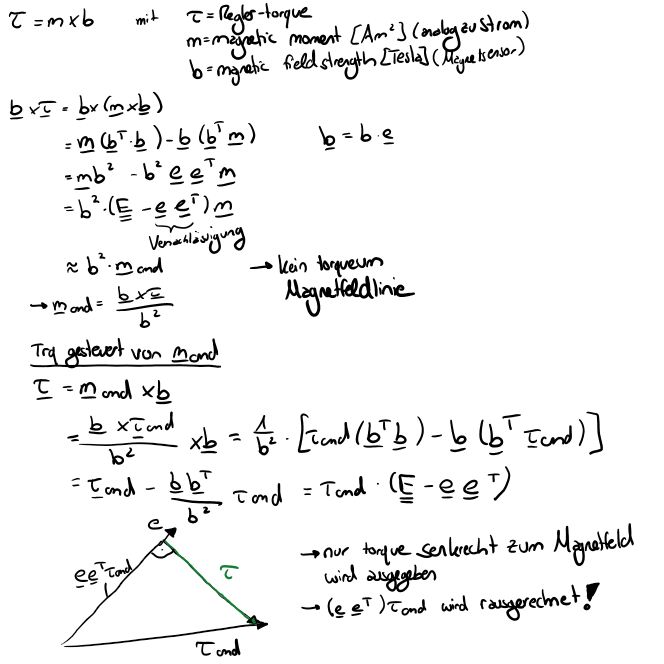 τ = m x b mit τ = Regler-torque
m = magnetic moment [Am²] (analog zu Strom)
b = mgnetic field strength [Tesla] (Magnetsensor)
b x τ = b x (m x b)
= m (bᵀ · b) - b (bᵀ m) b = b · e
= m b² - b² e eᵀ m
= b² · (E - e eᵀ) m
Vernachlässigung
≈ b² · m cmd → kein torque um
Magnetfeldlinie
→ m cmd = b x τ / b²
Trq gesteuert von m cmd
τ = m cmd x b
= b x τ cmd / b² x b = 1/b² · [τ cmd (bᵀ b) - b (bᵀ τ cmd)]
= τ cmd - b bᵀ / b² τ cmd = τ cmd · (E - e eᵀ)
e
e eᵀ τ cmd
τ
τ cmd
→ nur torque senkrecht zum Magnetfeld
wird ausgegeben
→ (e eᵀ) τ cmd wird rausgerechnet!